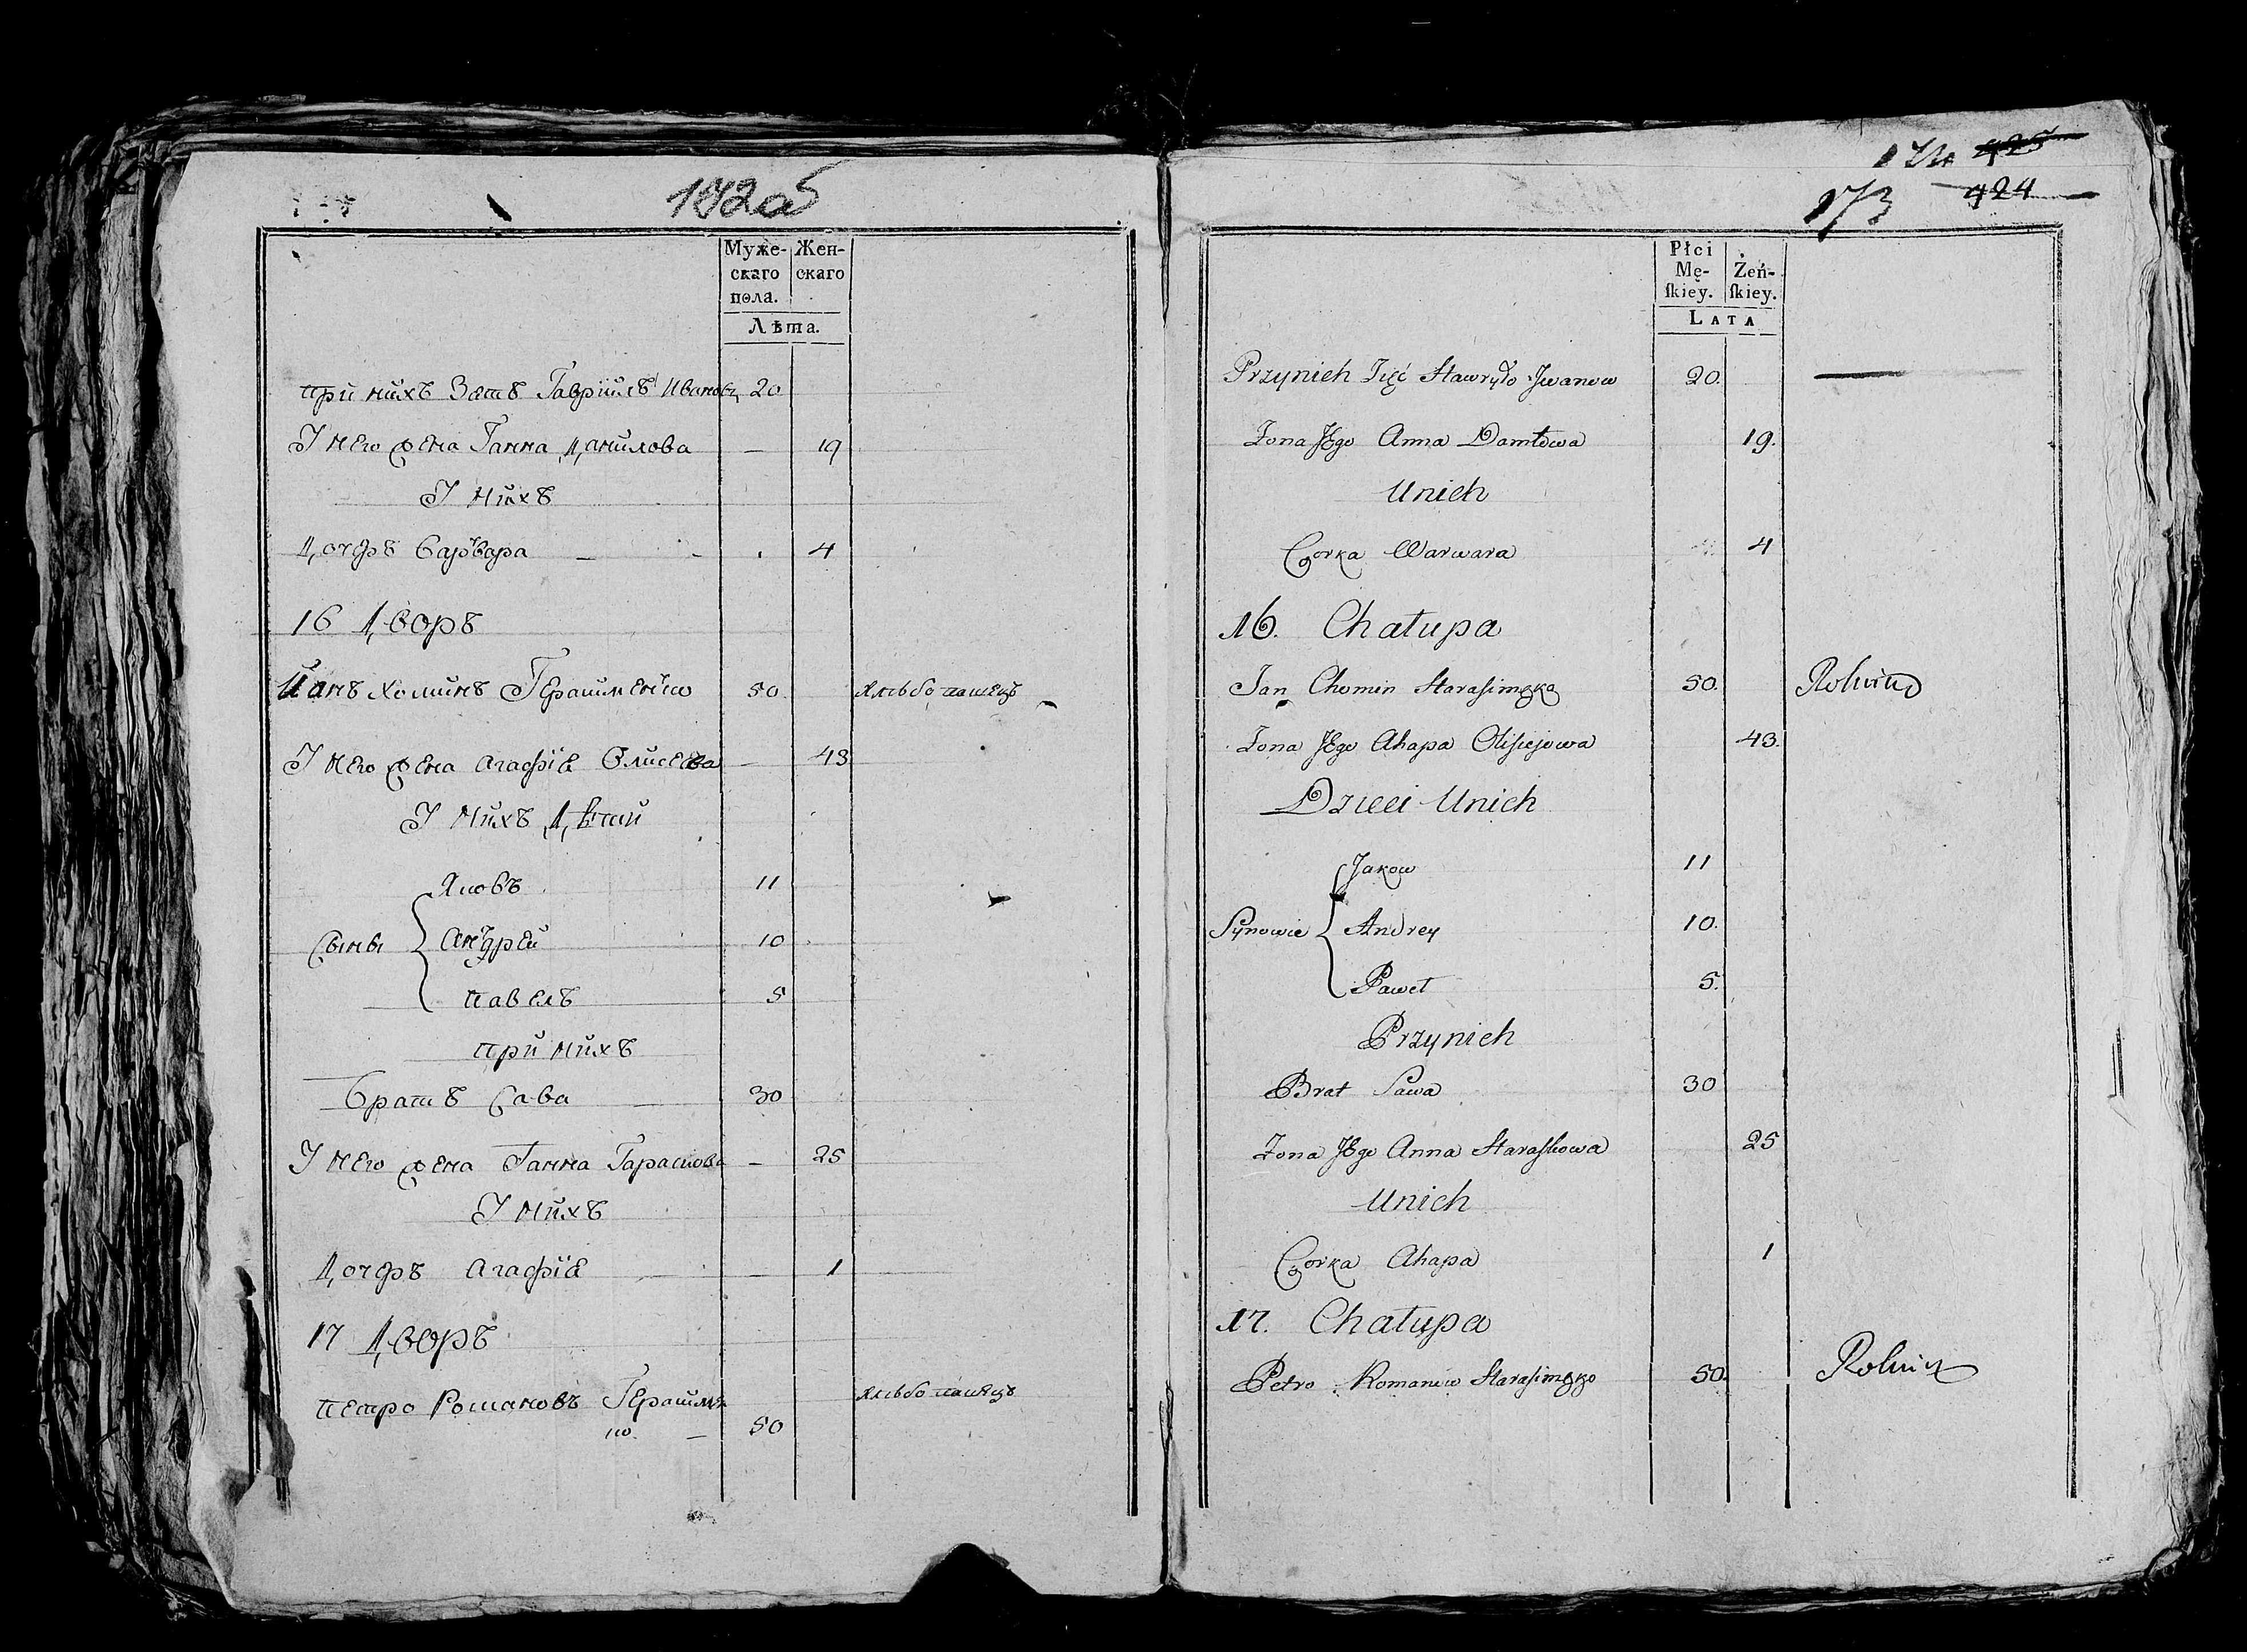 172аб
Муже-
скаго
пола.
Жен-
скаго
Лѣта.
при нихъ Зать Гаврiилъ Ивановъ 20
У него жена Ганна Данилова — 19
У нихъ
Дочерь Варвара — 4
16 Дворъ
Йанъ Хоминъ Герасименко 50 Хлѣбопашецъ
У него жена Агафiя Елисеева — 43
У нихъ Дѣти
Яковъ 11
Сыны Андрей 10
Павелъ 5
при нихъ
Братъ Сава 30
У него жена Ганна Тараскова — 25
У нихъ
Дочерь Агафiя — 1
17 Дворъ
Петро Романовъ Герасимен Хлѣбопашецъ
ко — 50
174 425
173 424
Płci
Mę-
ſkiey.
Żeń-
ſkiey.
LATA
Przynich Zięć Hawryło Jwanow 20. —
Zona Jego Anna Daniłowa 19.
Unich
Corka Warwara 4
16. Chałupa
Jan Chomin Harasimęko 50. Rolnik
Zona Jego Ahapa Olisiejowa 43.
Dzieci Unich
Jakow 11
Synowie Andrey 10.
Paweł 5.
Przynich
Brat Sawa 30
Zona Jego Anna Haraskowa 25
Unich
Corka Ahapa 1
17. Chałupa
Petro Romanow Harasimęko 50. Rolnik